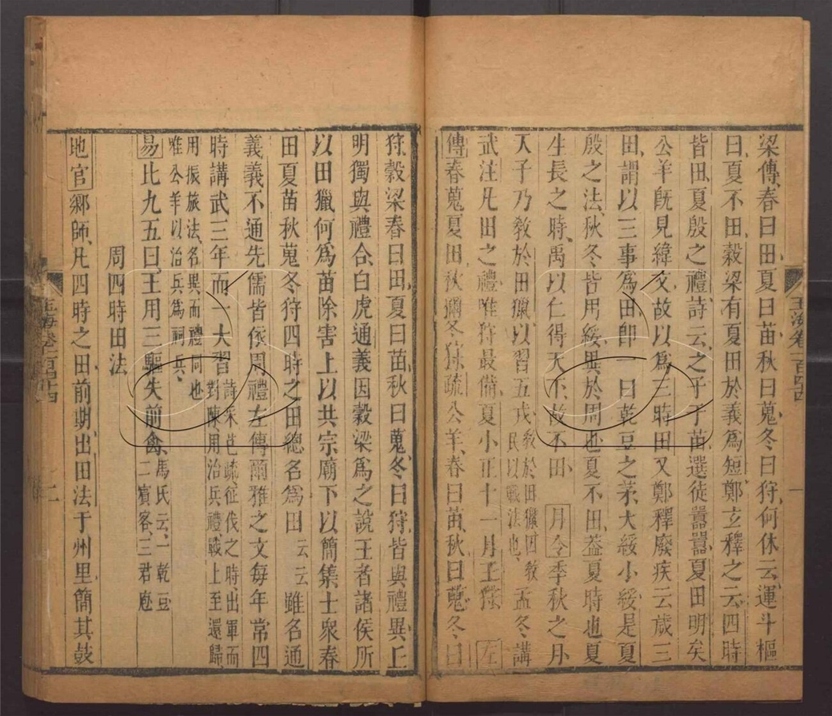 梁傳春曰田夏曰苗秋曰蒐冬曰狩何休云運斗樞
曰夏不田穀梁有夏田於義爲短鄭玄釋之云四時
皆田夏殷之禮詩云之子于苗選徒囂囂夏田明矣
公羊旣見緯文故以爲三時田又鄭釋廢疾云歲三
田謂以三事爲田卽一曰乾豆之等大綏小綏是夏
殷之法秋冬皆用綏異於周也夏不田蓋夏時也夏
生長之時禹以仁得天下故不田 月令季秋之月
天子乃敎於田獵以習五戎敎於田獵因敎民以戰法也孟冬講
武注凡田之禮唯狩最備夏小正十一月王狩 左
傳春蒐夏田秋獮冬狩疏公羊春曰苗秋曰蒐冬曰
玉海卷一百四十四
一
狩穀梁春曰田夏曰苗秋曰蒐冬曰狩皆與禮異上
明獨與禮合白虎通義因穀梁爲之說王者諸侯所
以田獵何爲苗除害上以共宗廟下以簡集士衆春
田夏苗秋蒐冬狩四時之田總名爲田云云雖名通
義義不通先儒皆依周禮左傳爾雅之文每年常四
時講武三年而一大習詩采芑疏征伐之時出軍而對陳用治兵禮戰上至還歸
用振旅法名異而禮同也唯公羊以治兵爲祠兵
易比九五曰王用三驅失前禽馬氏云一乾豆二賓客三君庖
周四時田法
地官鄉師凡四時之田前期出田法于州里簡其鼓
玉海卷一百四十四
二